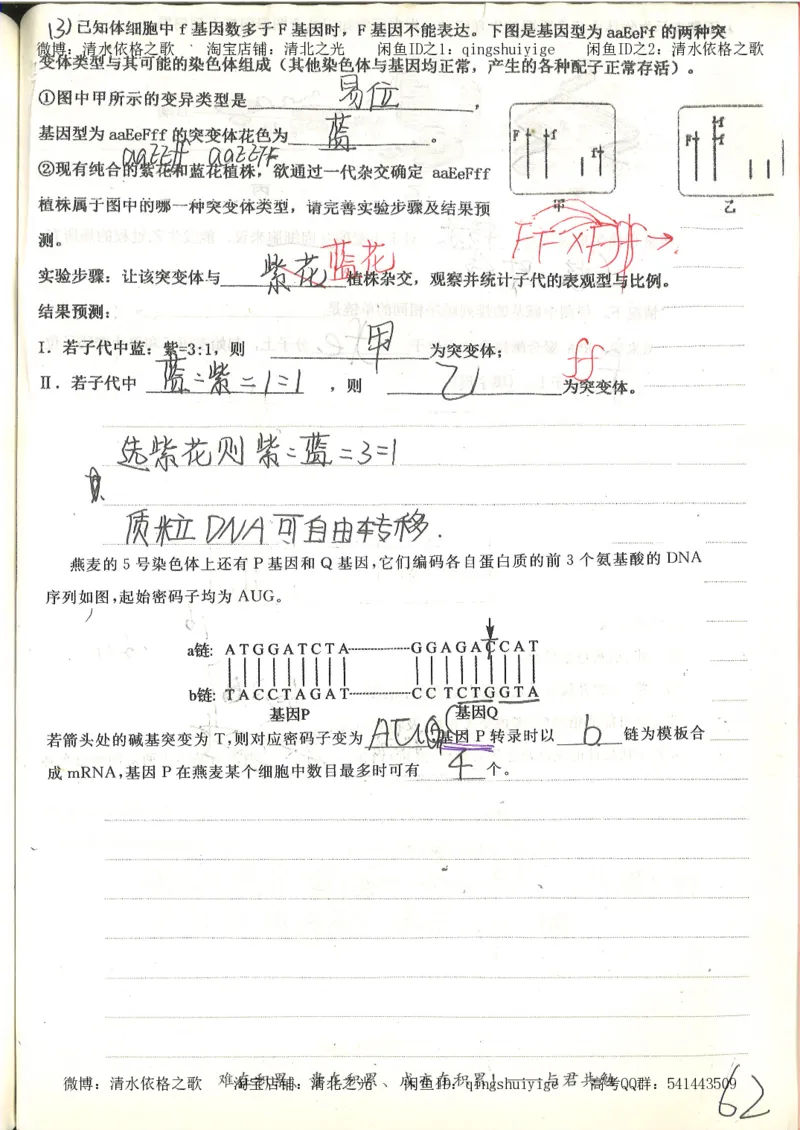 (3)已知体细胞中 f 基因数多于 F 基因时，F 基因不能表达。下图是基因型为 aaEeFf 的两种突
微博：清水依格之歌 淘宝店铺：清北之光 闲鱼ID之1：qingshuiyige 闲鱼ID之2：清水依格之歌
变体类型与其可能的染色体组成（其他染色体与基因均正常，产生的各种配子正常存活）。
①图中甲所示的变异类型是 易位 ，
基因型为 aaEeFff 的突变体花色为 蓝 。
aaEEff aaEEFF
②现有纯合的紫花和蓝花植株，欲通过一代杂交确定 aaEeFff
植株属于图中的哪一种突变体类型，请完善实验步骤及结果预
测。
F f f 甲
F f f 乙
FF×Fff→
实验步骤：让该突变体与 紫花 蓝花 植株杂交，观察并统计子代的表观型与比例。
结果预测：
I．若子代中蓝：紫=3:1，则 甲 为突变体；
ff
II．若子代中 蓝:紫=1:1 ，则 乙 为突变体。
选紫花则紫:蓝=3=1
质粒DNA可自由转移.
燕麦的 5 号染色体上还有 P 基因和 Q 基因,它们编码各自蛋白质的前 3 个氨基酸的 DNA
序列如图,起始密码子均为 AUG。
a链: ATGGATCTA GGAGACCAT
b链: TACCTAGAT CCTCTGGTA
基因P 基因Q
若箭头处的碱基突变为 T,则对应密码子变为 AUG 基因 P 转录时以 b 链为模板合
成 mRNA,基因 P 在燕麦某个细胞中数目最多时可有 4 个。
难在积累、贵在积累、成亦在积累！——与君共勉
微博：清水依格之歌 淘宝店铺：清北之光 闲鱼ID：qingshuiyige 高考QQ群：541443509
62